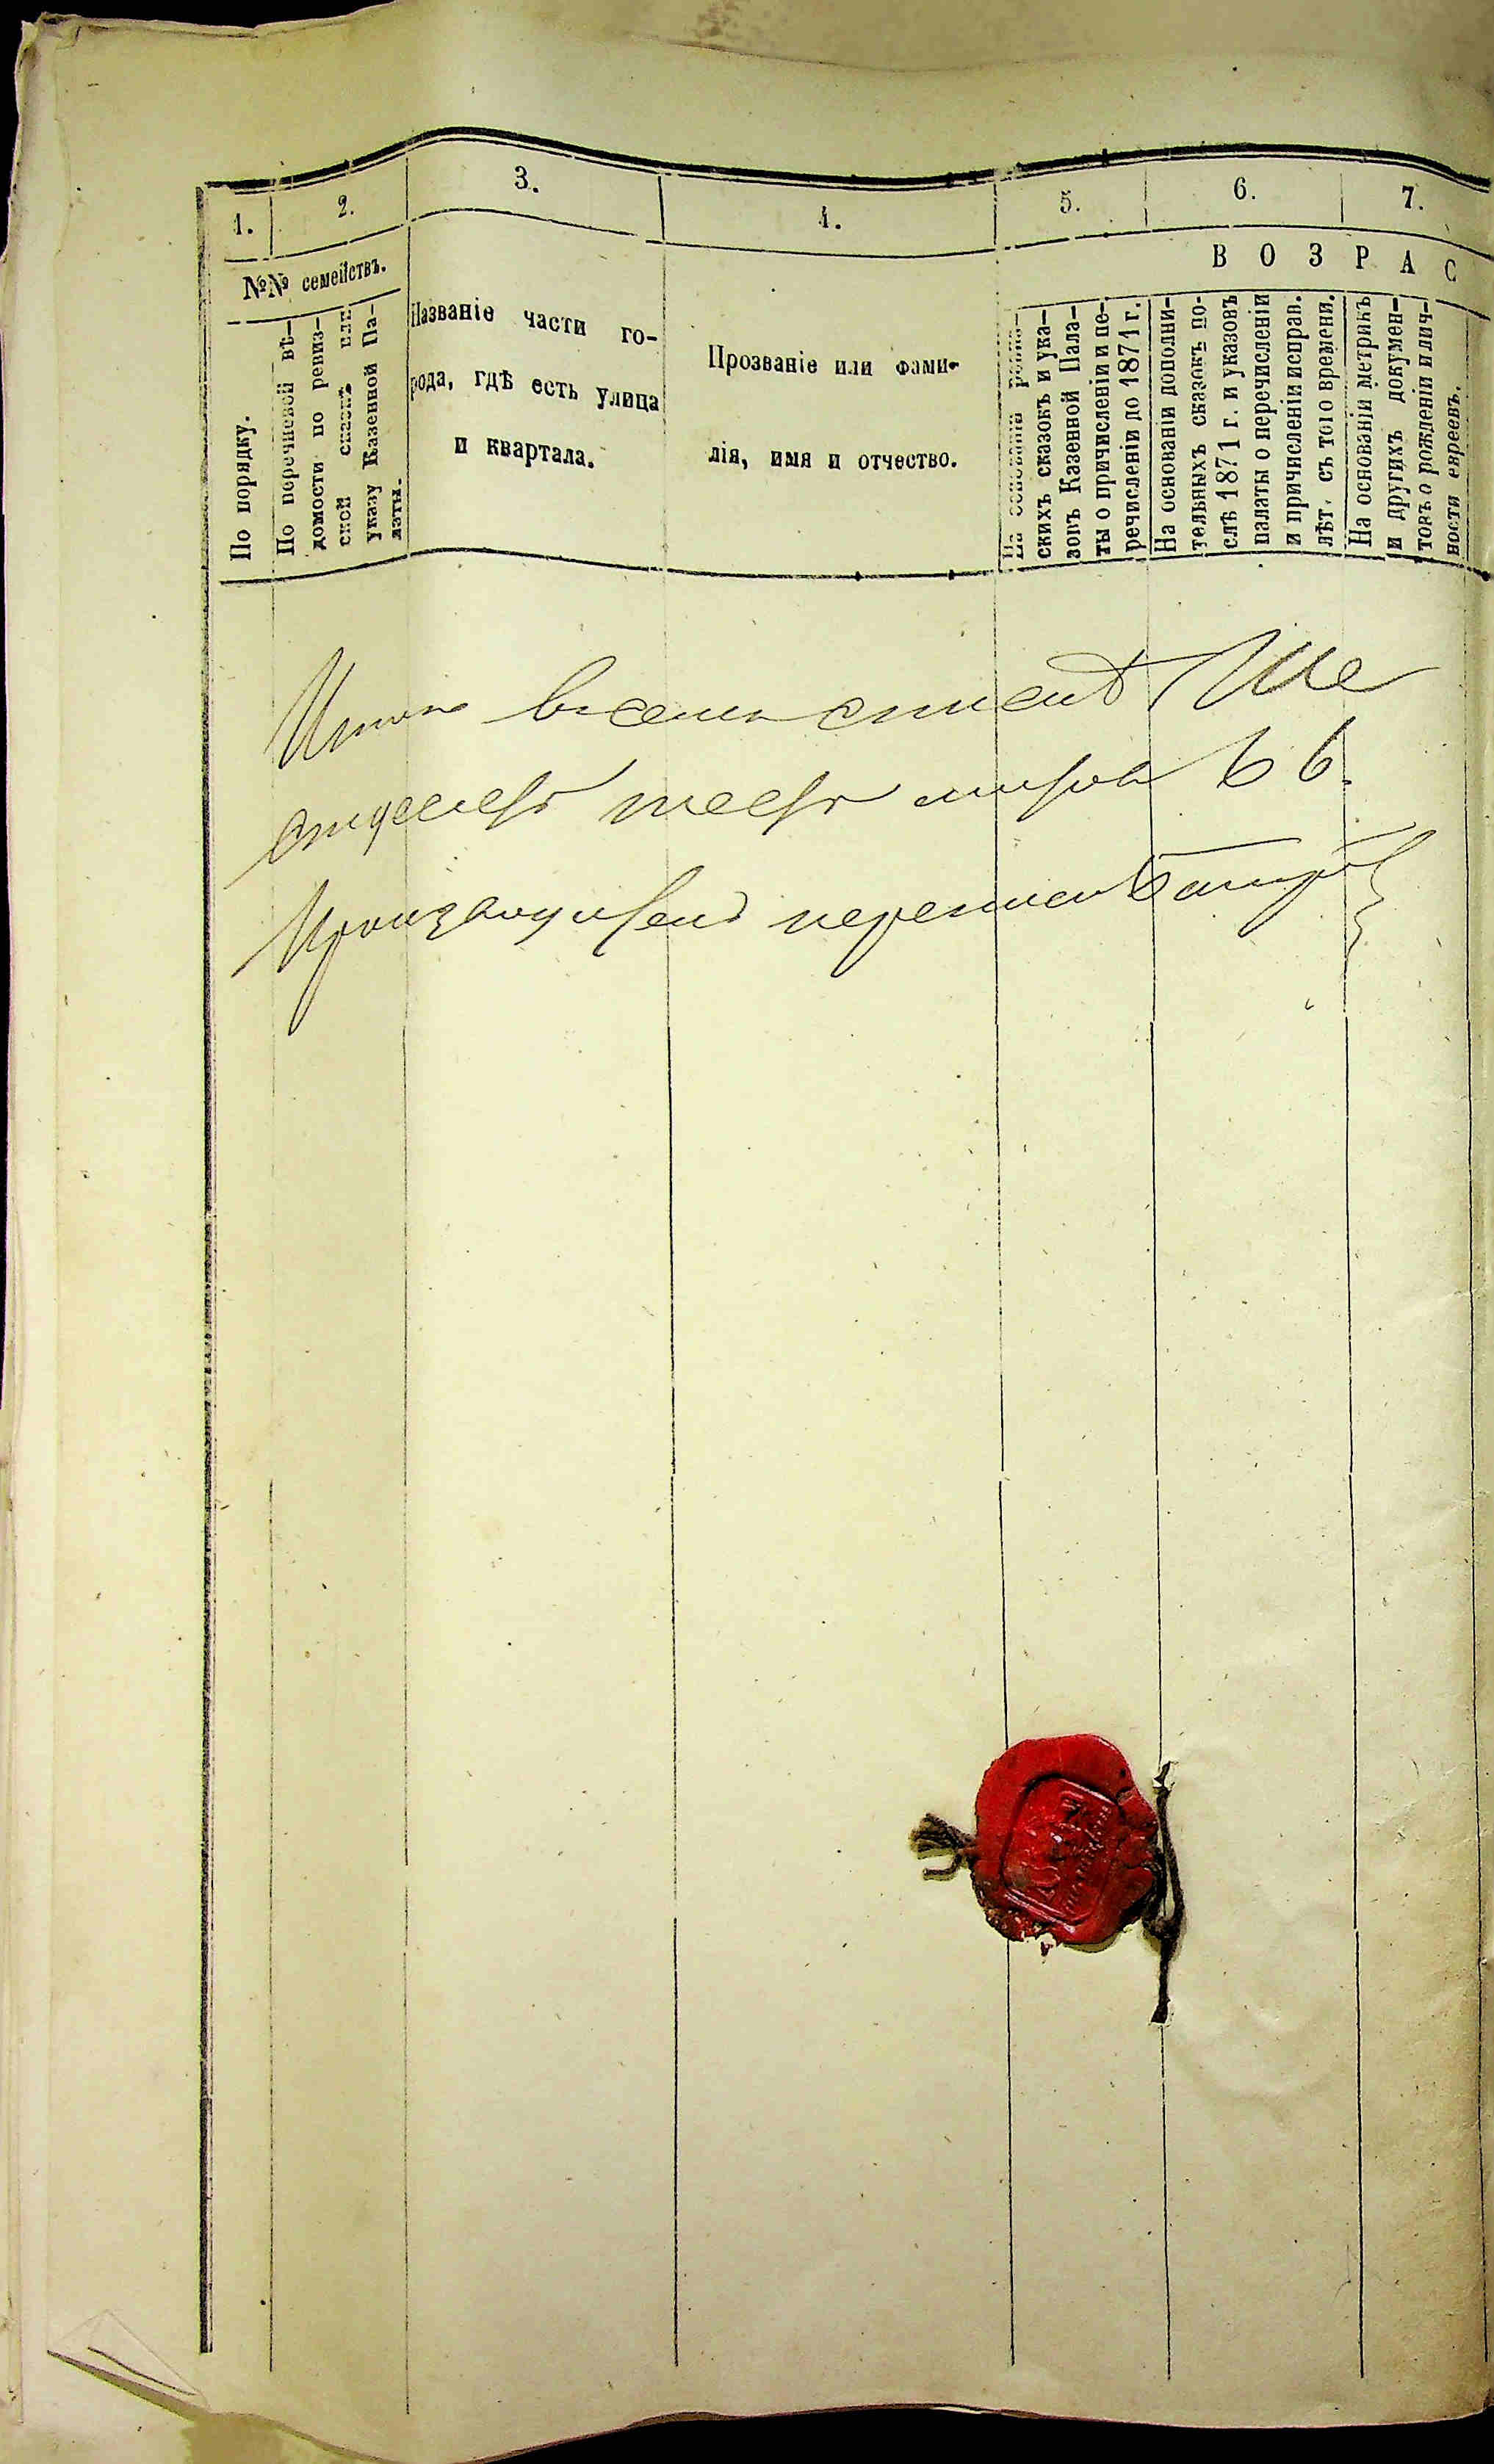 1.
2.
3.
4.
5.
6.
7.
В О З Р А С
№№ семействъ.
По порядку.
По перечневой вѣ-
домости по ревиз-
ской сказкѣ или
указу Казенной Па-
латы.
Названіе части го-
рода, гдѣ есть улица
и квартала.
Прозваніе или фами-
лія, имя и отчество.
На основаніи
скихъ сказокъ и ука-
зовъ Казенной Пала-
ты о причисленіи и пе-
речисленіи до 1871 г.
На основаніи дополни-
тельныхъ сказокъ по-
слѣ 1871 г. и указовъ
палаты о перечисленіи
и причисленіи исправ.
лѣт. съ того времени.
На основаніи метрикъ
и другихъ докумен-
товъ о рожденіи и лич-
ности евреевъ.
Итого въ семъ спискѣ Ше
стьдесятъ шесть 66.
Производившій перепись